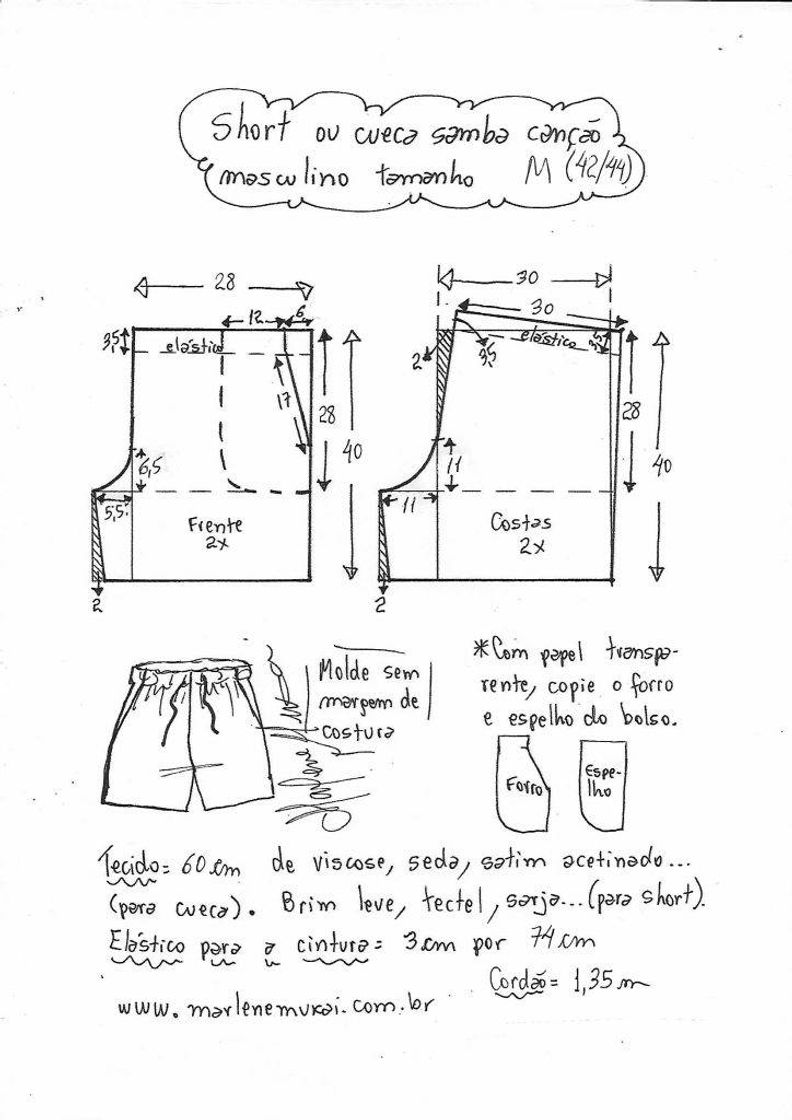 Short ou cueca samba canção
masculino tamanho M (42/44)
28
12
6
3,5
elástico
17
28
40
6,5
5,5
Frente
2x
2
30
30
2
3,5
elástico
3,5
28
40
11
11
Costas
2x
2
Molde sem
margem de
costura
*Com papel transpa-
rente, copie o forro
e espelho do bolso.
Forro
Espe-
lho
Tecido= 60 cm de viscose, seda, satim acetinado...
(para cueca). Brim leve, tectel, sarja...(para short).
Elástico para a cintura= 3 cm por 74 cm
Cordão= 1,35 m
www.marlenemukai.com.br